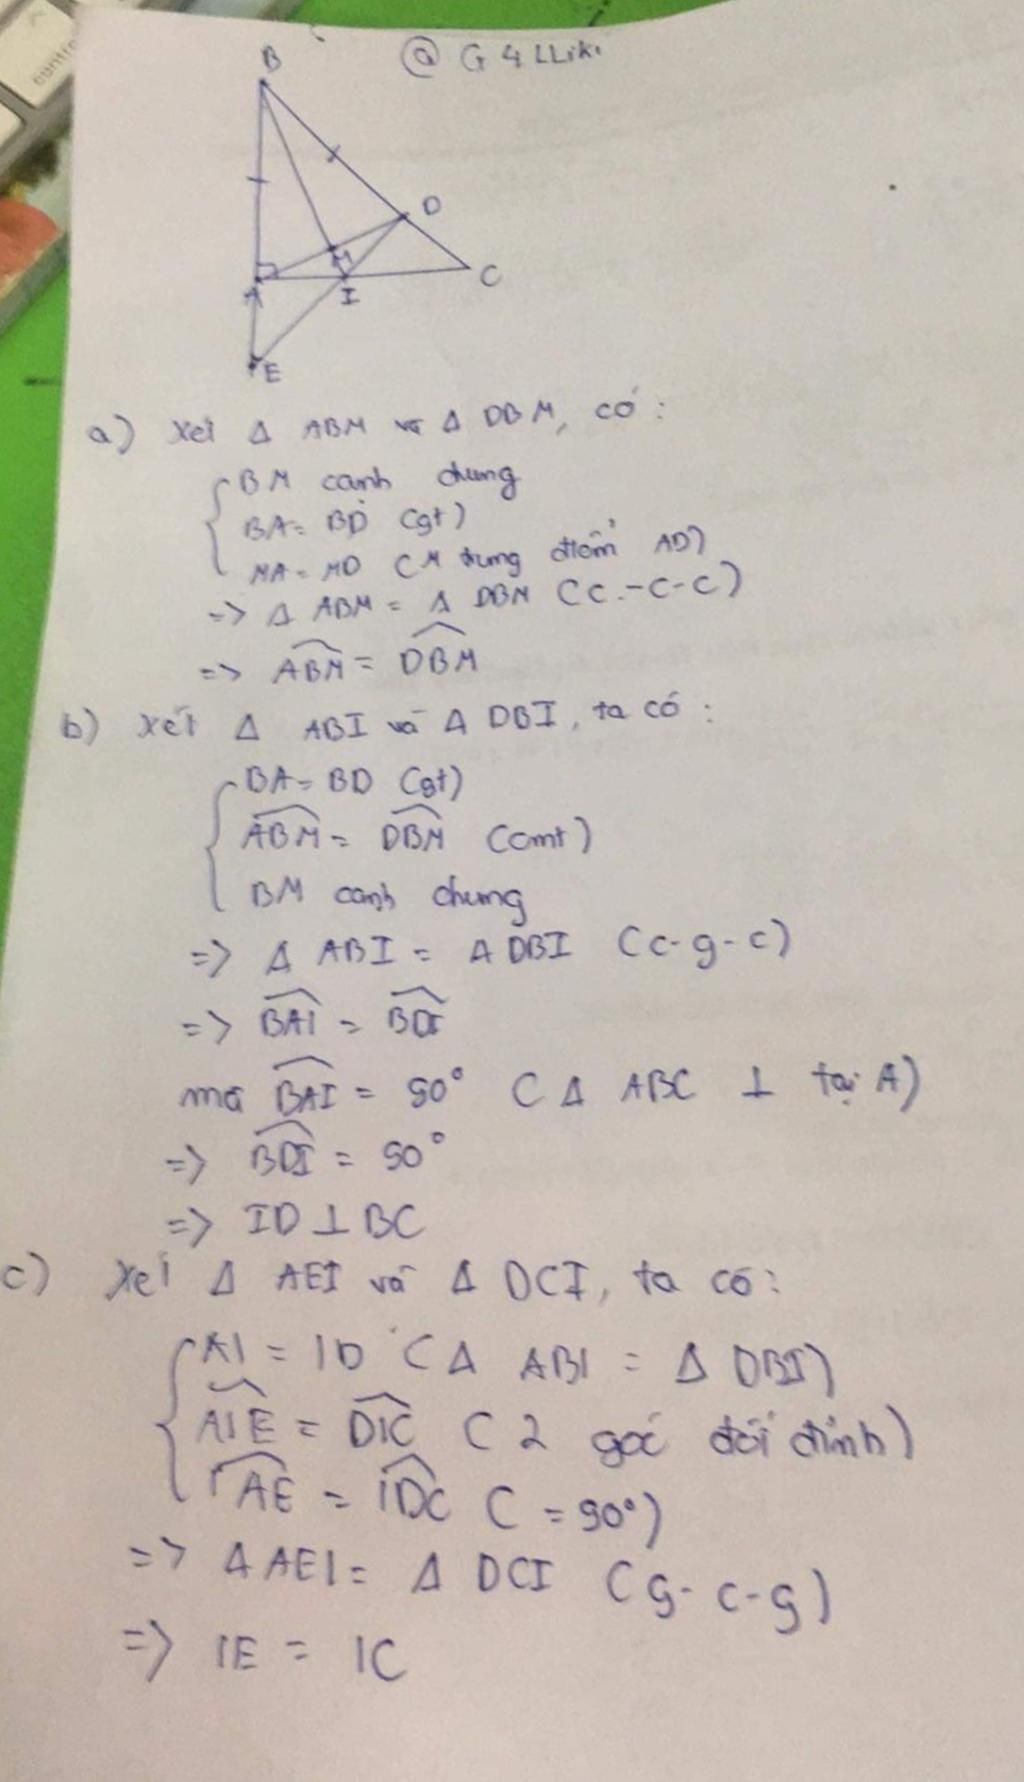 contro
@ G 4 LLiki
B
D
M
A
I
C
E
a) Xét Δ ABM và Δ DBM, có :
BM cạnh chung
BA = BD (gt)
MA = MD (M trung điểm AD)
=> Δ ABM = Δ DBM (c-c-c)
=> ABM = DBM
b) Xét Δ ABI và Δ DBI, ta có :
BA = BD (gt)
ABM = DBM (cmt)
BM cạnh chung
=> Δ ABI = Δ DBI (c-g-c)
=> BAI = BDI
mà BAI = 90° (Δ ABC ⊥ tại A)
=> BDI = 90°
=> ID ⊥ BC
c) Xét Δ AEI và Δ DCI, ta có :
AI = ID (Δ ABI = Δ DBI)
AIE = DIC (2 góc đối đỉnh)
IAE = IDC (= 90°)
=> Δ AEI = Δ DCI (g-c-g)
=> IE = IC